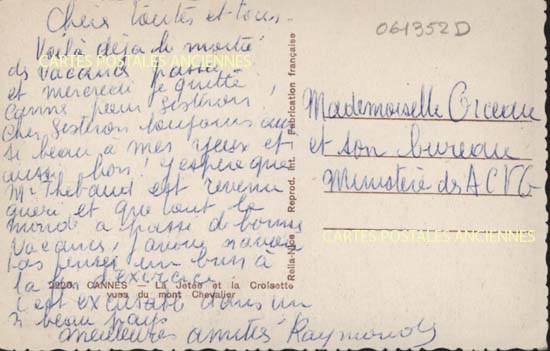 Chers toutes et tous.
Voilà déjà la moitié
de vacances passée
et mercredi je quitte
Cannes pour Sisteron,
Cher Sisteron toujours aus
si beau à mes yeux et
aussi bon! J'espère que
Mr Thebaud est revenu
guéri et que tout le
monde a passé de bonnes
vacances, J'avoue n'avoir
pas penser un brin à
la fin d'exercice
c'est excusable dans un
si beau pays
meilleures amitiés Raymonde
061352D
Mademoiselle
et son bureau
Ministère des ACVG
Rella-Nice - Reprod. Int. Fabrication française
2220. CANNES — La Jetée et la Croisette
vues du mont Chevalier
CARTES POSTALES ANCIENNES
CARTES POSTALES ANCIENNES
CARTES POSTALES ANCIENNES